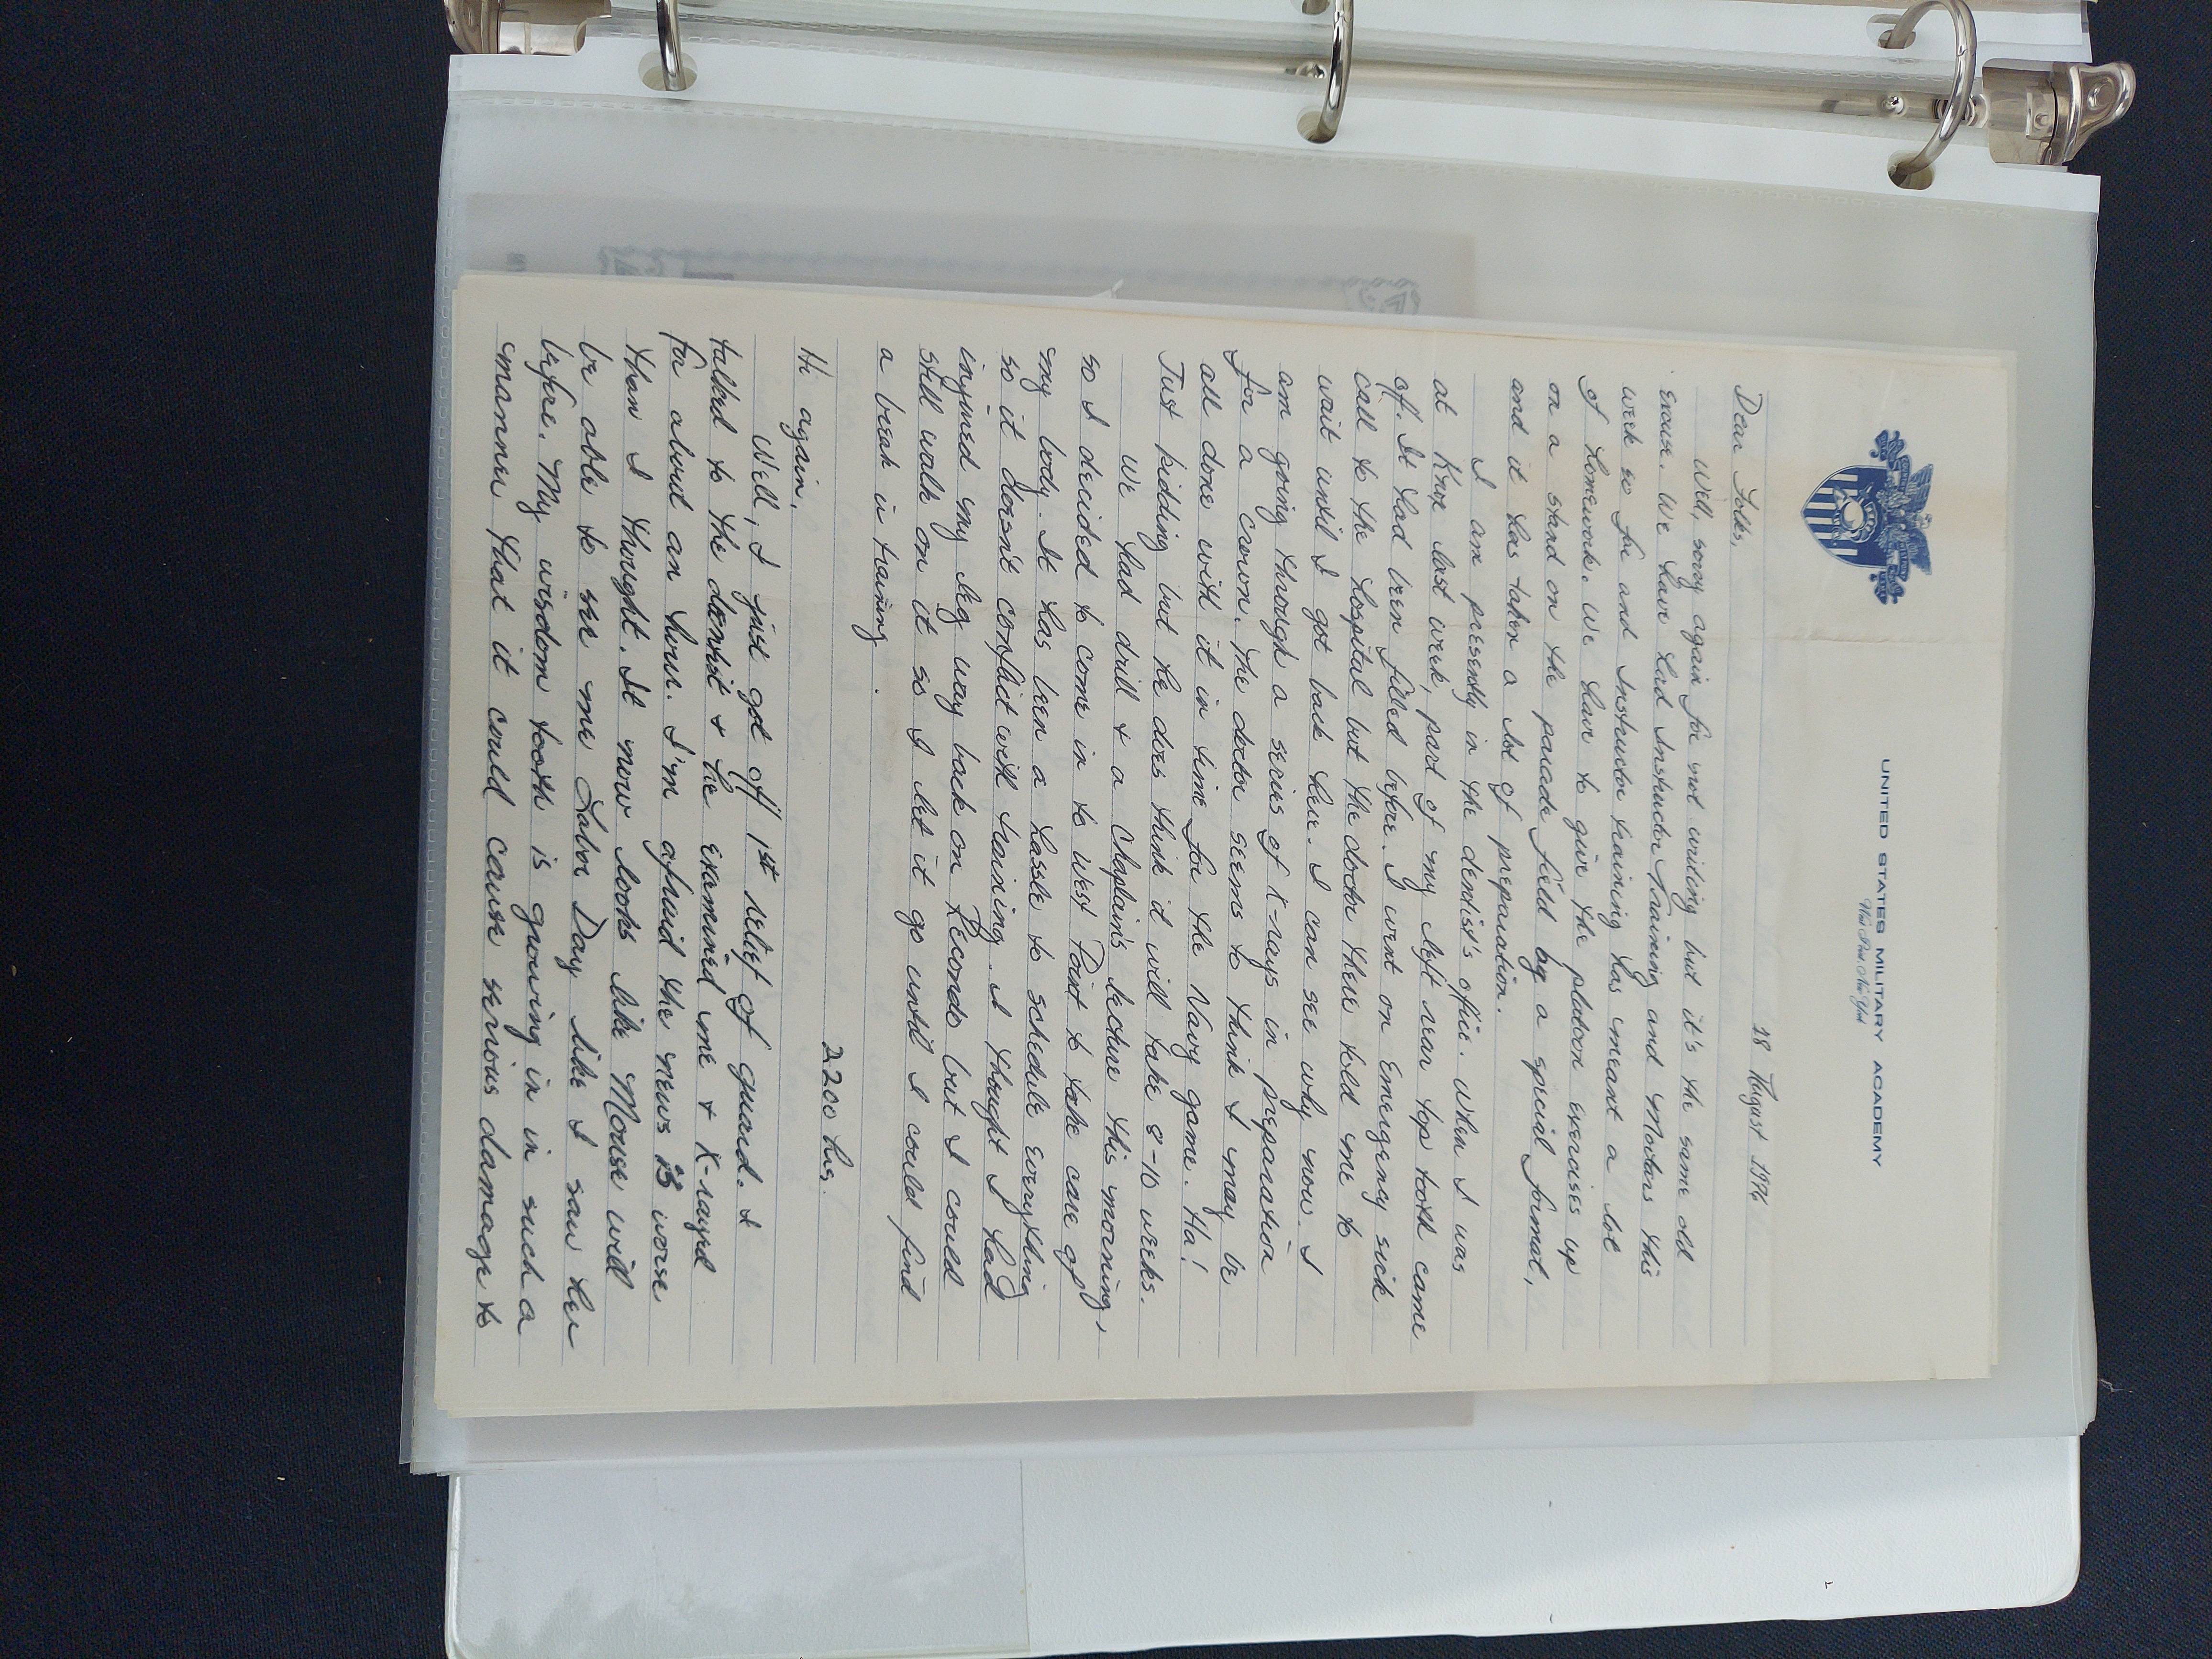 UNITED STATES MILITARY ACADEMY
West Point New York
18 August 1976
Dear Folks,
Well, sorry again for not writing but it's the same old
excuse. We have had Instructor Training and Mortars this
week so far and Instructor training has meant a lot
of homework. We have to give the platoon exercises up
on a stand on the parade field by a special format,
and it has taken a lot of preparation.
I am presently in the dentist's office. When I was
at Knox last week, part of my left rear top tooth came
off. It had been filled before. I went on Emergency sick
call to the hospital but the doctor there told me to
wait until I got back here. I can see why now. I
am going through a series of X-rays in preparation
for a crown. The doctor seems to think I may be
all done with it in time for the Navy game. Ha!
Just kidding but he does think it will take 8-10 weeks.
We had drill & a Chaplain's lecture this morning,
so I decided to come in to West Point to take care of
my body. It has been a hassle to schedule everything
so it doesn't conflict with training. I thought I had
injured my leg way back on Recondo but I could
still walk on it so I let it go until I could find
a break in training.
2200 hrs.
Hi again,
Well, I just got off 1st relief of guard. I
talked to the dentist & he examined me & X-rayed
for about an hour. I'm afraid the news is worse
than I thought. It now looks like Mouse will
be able to see me Labor Day like I saw her
before. My wisdom tooth is growing in in such a
manner that it could cause serious damage to